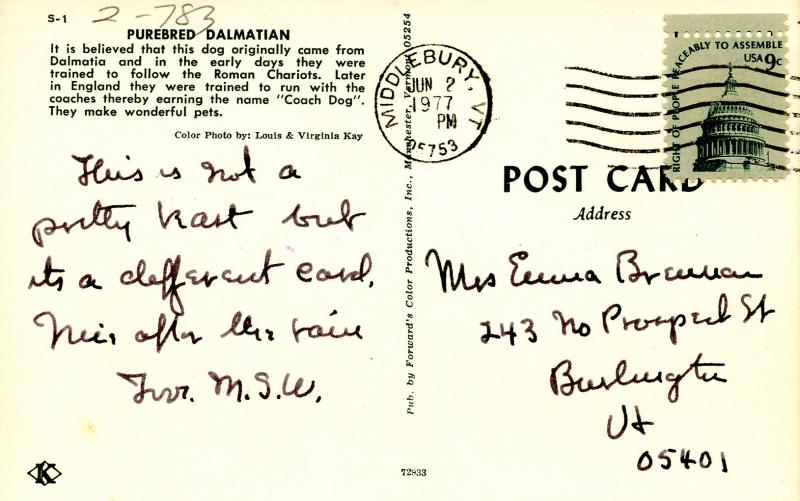 S-1
2-783
PUREBRED DALMATIAN
It is believed that this dog originally came from
Dalmatia and in the early days they were
trained to follow the Roman Chariots. Later
in England they were trained to run with the
coaches thereby earning the name "Coach Dog".
They make wonderful pets.
Color Photo by: Louis & Virginia Kay
This is not a
pretty but
its a different card.
after the rain
M.S.W.
K
Pub. by Forward's Color Productions, Inc., Manchester, Vermont 05254
72933
MIDDLEBURY, VT
JUN 2
1977
PM
05753
RIGHT OF PEOPLE PEACEABLY TO ASSEMBLE
USA 9c
POST CARD
Address
Mrs Emma Brennan
243 No Prospect St
Burlington
Vt
05401